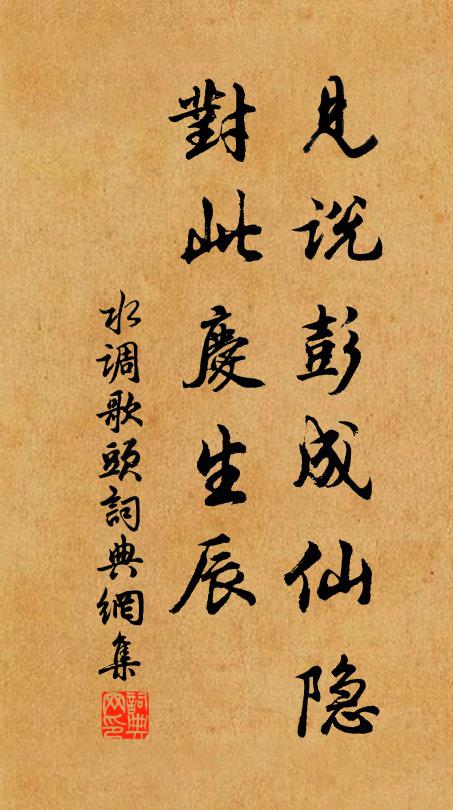 見说彭成仙隐
對此慶生辰
水调歌頭詞典網集
詞典網印